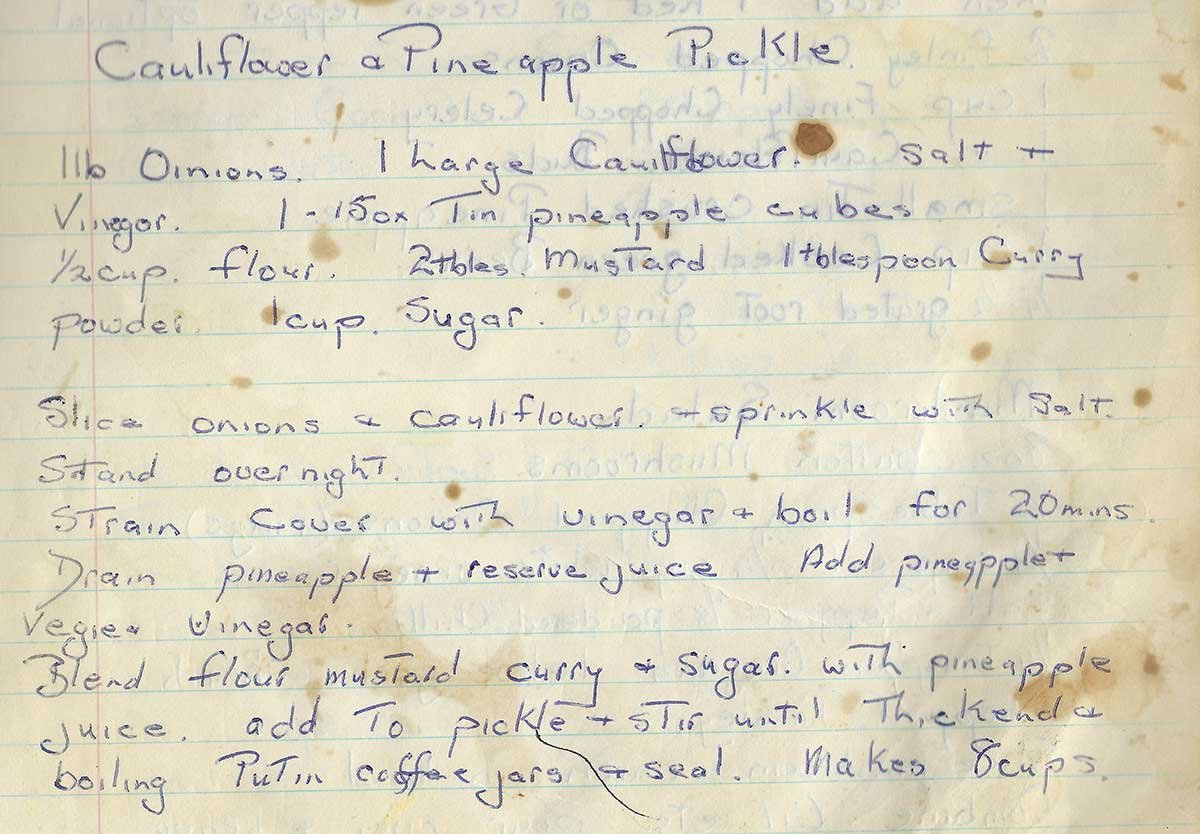 Cauliflower & Pineapple Pickle.
1lb Oinions. 1 Large Cauliflower. Salt +
Vinegar. 1 - 15oz Tin pineapple cubes
1/2 cup. flour. 2tbles. Mustard 1 tblespoon Curry
powder. 1cup. Sugar.
Slice onions & cauliflower. + sprinkle with Salt.
Stand overnight.
Strain Cover with vinegar + boil for 20mins.
Drain pineapple + reserve juice Add pineapple +
Vegie & Vinegar.
Blend flour mustard curry & sugar. with pineapple
juice. add To pickle + stir until Thickend &
boiling Put in coffee jars & seal. Makes 8cups.